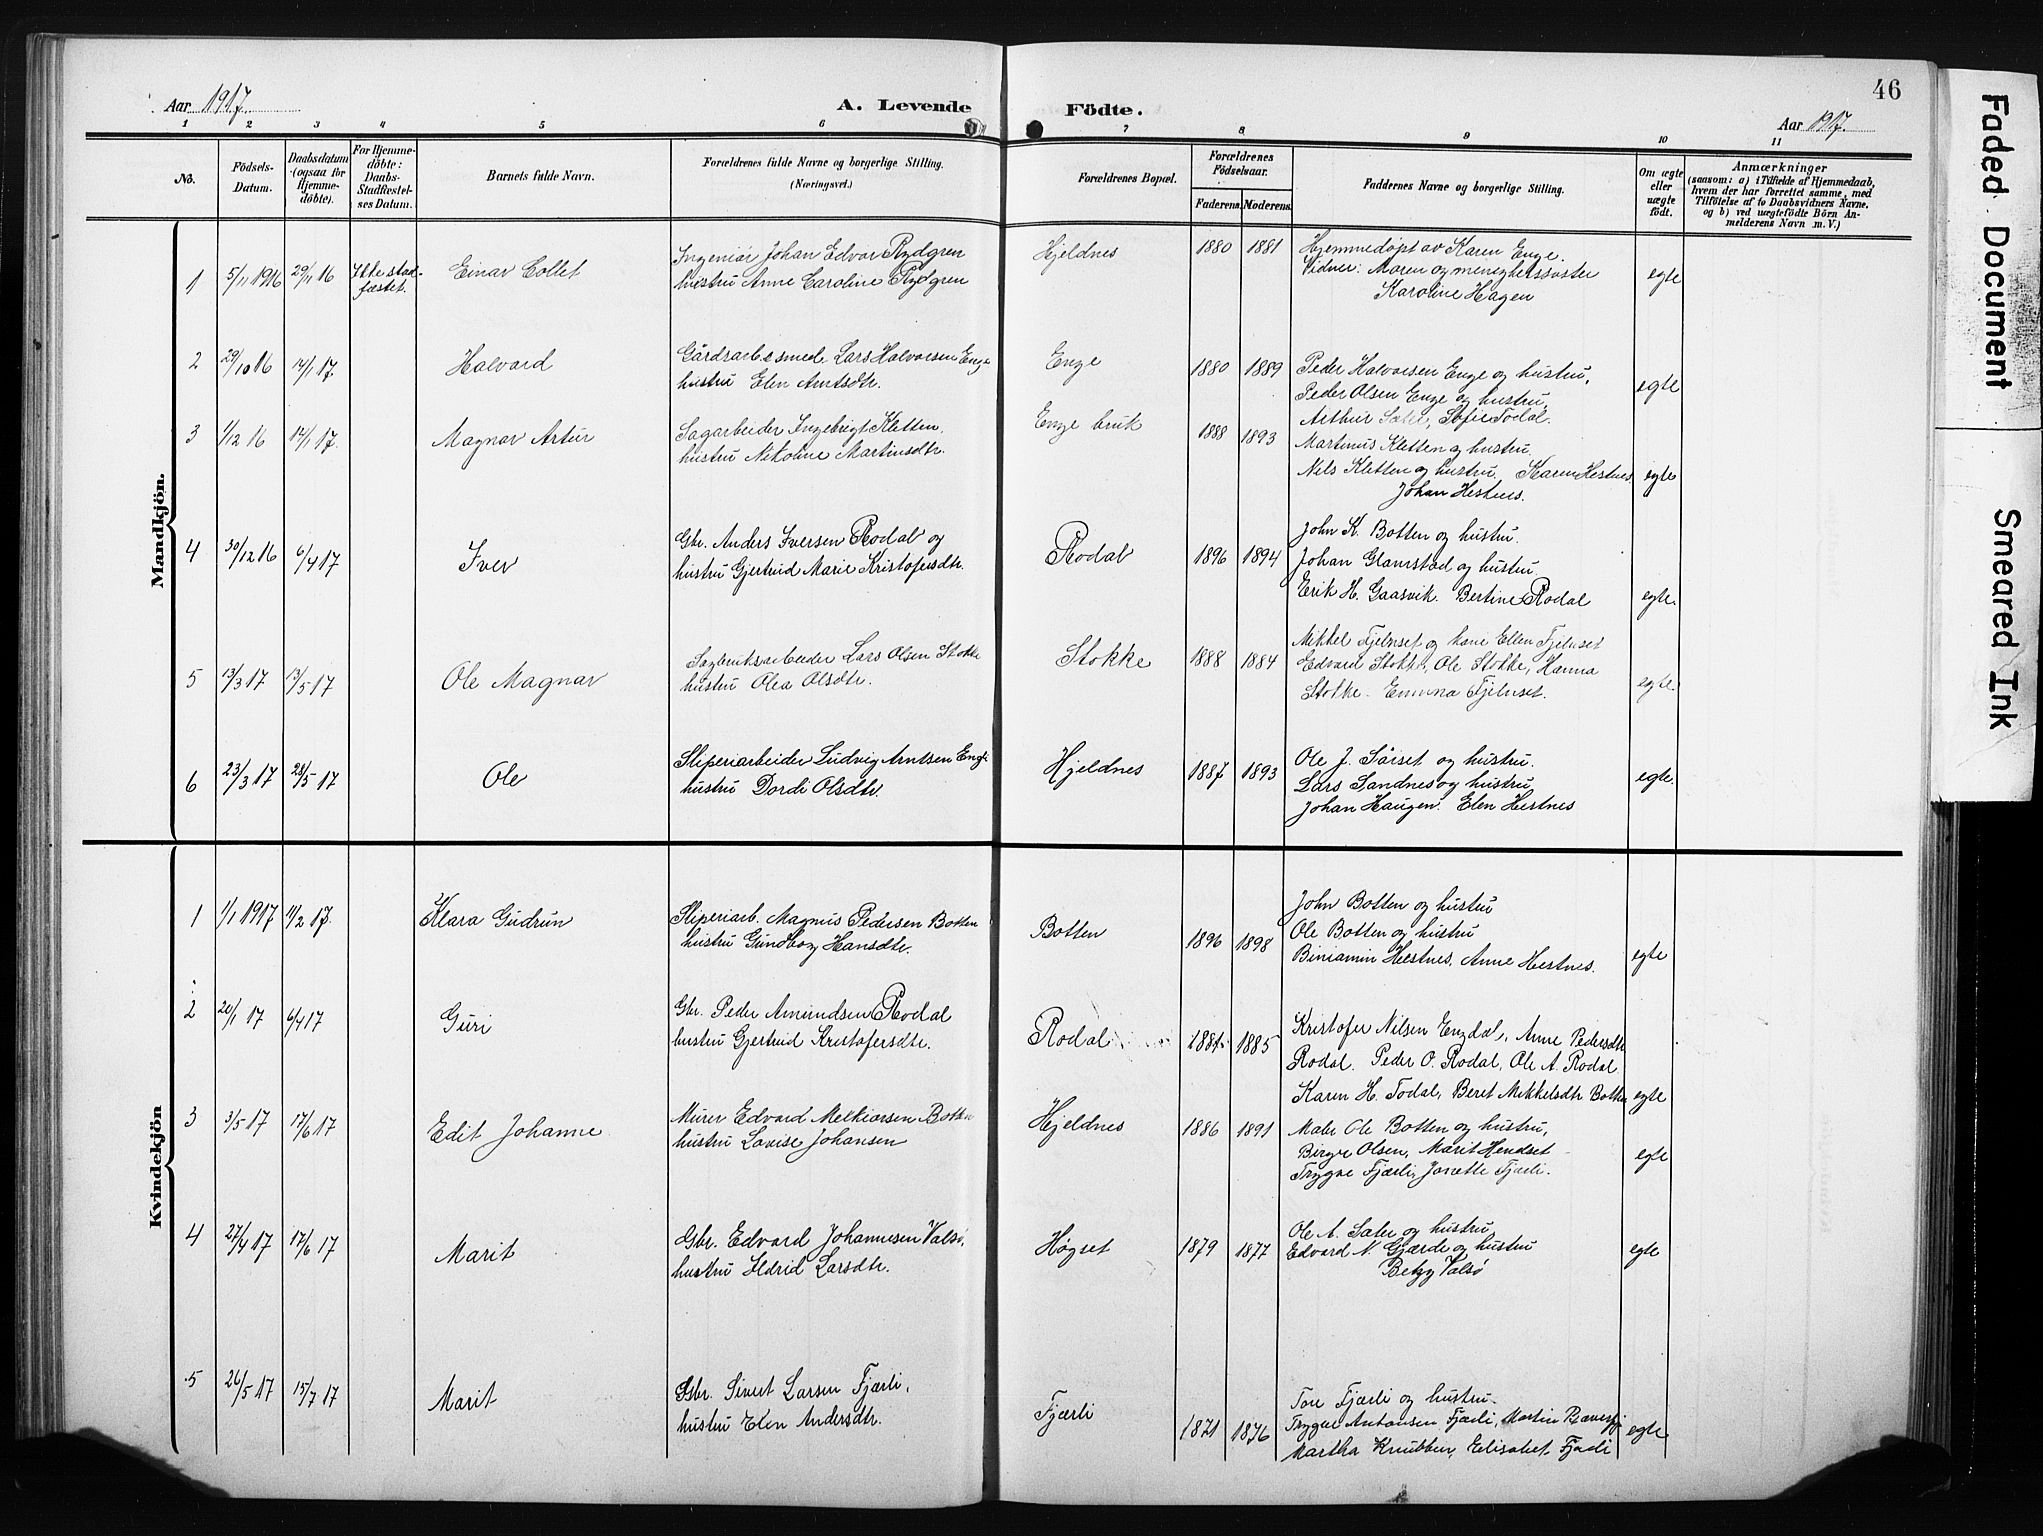 46
Aar 1917.
A. Levende
Födte.
Aar 1917.
1 2 3 4 5 6 7 8 9 10 11
No.
Födsels-
Datum.
Daabsdatum
(ogsaa for
Hjemme-
döbte).
For Hjemme-
döbte:
Daabs-
Stadfæstel-
ses Datum.
Barnets fulde Navn.
Forældrenes fulde Navne og borgerlige Stilling.
(Næringsvei.)
Forældrenes Bopæl.
Forældrenes
Födselsaar.
Faderens. Moderens.
Faddernes Navne og borgerlige Stilling.
Om ægte
eller
uægte
födt.
Anmærkninger
(saasom: a) i Tilfælde af Hjemmedaab,
hvem der har forrettet samme, med
Tilföielse af to Daabsvidners Navne,
og b) ved uægtefödte Börn An-
melderens Navn m. V.)
Mandkjön.
1 5/11 1916 29/11 16 Ikke stad-
fæstet. Einar Collet
Ingeniør Johan Edvar Rydgren
hustru Anne Caroline Rydgren
Hjeldnes 1880 1881
Hjemmedøpt av Karen Enge.
Vidner: Moren og menighetssøster
Karoline Hagen
egte
2 29/10 16 14/1 17. Halvard
Gårdsarb. & smed Lars Halvorsen Enge
hustru Elen Arntsdtr.
Enge 1880 1889
Peder Halvorsen Enge og hustru,
Peder Olsen Enge og hustru,
Arthur Sæter, Sofie Todal.
egte
3 1/12 16 14/1 17. Magnar Artur
Sagarbeider Ingebrigt Kletten.
hustru Nikoline Martinsdtr.
Enge bruk 1888 1893
Martinus Kletten og hustru.
Nils Kletten og hustru. Karen Hestnes
Johan Hestnes.
egte
4 30/12 16 6/4 17 Iver
Gbr. Anders Iversen Rodal og
hustru Gjertrud Marie Kristofersdtr.
Rodal 1896 1894
John K. Botten og hustru.
Johan Glamstad og hustru.
Erik H. Gaasvik. Bertine Rodal
egte.
5 13/3 17 13/5 17 Ole Magnar
Sagbruksarbeider Lars Olsen Stokke
hustru Olea Olsdtr.
Stokke 1888 1884
Mikkel Fjelnset og kone Ellen Fjelnset
Edvard Stokke, Ole Stokke, Hanna
Stokke. Emma Fjelnset.
egte.
6 23/3 17 28/5 17 Ole
Sliperiarbeider Ludvig Arntsen Enge
hustru Dordi Olsdtr.
Hjeldnes 1887 1893
Ole J. Sørset og hustru.
Lars Sandnes og hustru
Johan Haugen. Elen Hestnes
egte.
Kvindekjön
1 1/1 1917 11/2 17. Klara Gudrun
Sliperiarb. Magnus Pedersen Botten
hustru Gundborg Hansdtr.
Botten 1896 1898
John Botten og hustru
Ole Botten og hustru
Biniamin Hestnes, Anne Hestnes.
egte
2 20/1 17 6/4 17 Guri
Gbr. Peder Amundsen Rodal
hustru Gjertrud Kristofersdtr.
Rodal 1881 1885
Kristofer Nilsen Engdal, Anne Pedersdtr
Rodal. Peder O. Rodal, Ole A. Rodal
Karen H. Todal, Beret Mikkelsdtr Botten
egte
3 3/5 17 17/6 17 Edit Johanne
Murer Edvard Melkiorsen Botten
hustru Lovise Johansen
Hjeldnes 1886 1891
Maler Ole Botten og hustru,
Birger Olsen, Marit Hendset
Trygve Fjærli, Jonette Fjærli.
egte
4 27/4 17 17/6 17 Marit
Gbr. Edvard Johannesen Valsø,
hustru Ildrid Larsdtr.
Høgset 1879 1877
Ole A. Sæter og hustru
Edvard N. Gjærde og hustru
Betzy Valsø
egte
5 26/5 17 15/7 17 Marit
Gbr. Sivert Larsen Fjærli,
hustru Elen Andersdtr.
Fjærli 1871 1876
Tore Fjærli og hustru.
Trygve Antonsen Fjærli, Martin
Martha Knubben, Elisabet Fjærli
egte
Faded Document
Smeared Ink